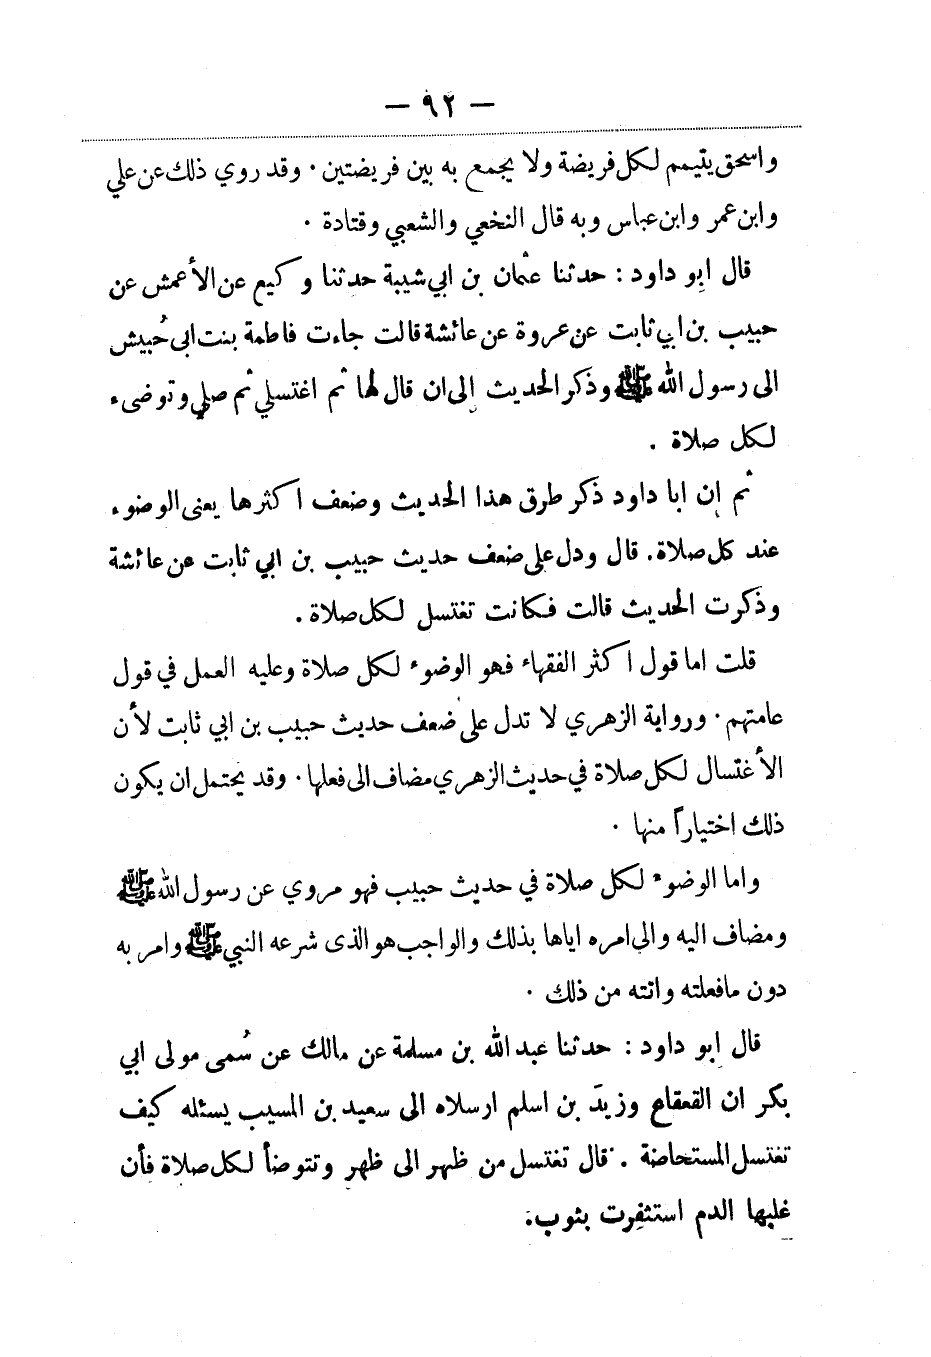 — ٩٢ —
واسحق يتيمم لكل فريضة ولا يجمع به بين فريضتين · وقد روي ذلك عن علي
وابن عمر وابن عباس وبه قال النخعي والشعبي وقتادة ·
قال ابو داود : حدثنا عثمان بن ابي شيبة حدثنا وكيع عن الأعمش عن
حبيب بن ابي ثابت عن عروة عن عائشة قالت جاءت فاطمة بنت ابى حُبيش
الى رسول الله ﷺ وذكر الحديث إلى ان قال لها ثم اغتسلي ثم صلي وتوضىء
لكل صلاة .
ثم إن ابا داود ذكر طرق هذا الحديث وضعف اكثرها يعنى الوضوء
عند كل صلاة. قال ودل على ضعف حديث حبيب بن ابي ثابت عن عائشة
وذكرت الحديث قالت فكانت تغتسل لكل صلاة.
قلت اما قول اكثر الفقهاء فهو الوضوء لكل صلاة وعليه العمل في قول
عامتهم · ورواية الزهري لا تدل على ضعف حديث حبيب بن ابي ثابت لأن
الأغتسال لكل صلاة في حديث الزهري مضاف الى فعلها · وقد يحتمل ان يكون
ذلك اختياراً منها ·
واما الوضوء لكل صلاة في حديث حبيب فهو مروي عن رسول الله ﷺ
ومضاف اليه والى امره اياها بذلك والواجب هو الذى شرعه النبي ﷺ وامر به
دون مافعلته واتته من ذلك ·
قال ابو داود : حدثنا عبد الله بن مسلمة عن مالك عن سُمى مولى ابي
بكر ان القعقاع وزيدَ بن اسلم ارسلاه الى سعيد بن المسيب يسئله كيف
تغتسل المستحاضة . قال تغتسل من ظهر الى ظهر وتتوضأ لكل صلاة فأن
غلبها الدم استثفرت بثوب.